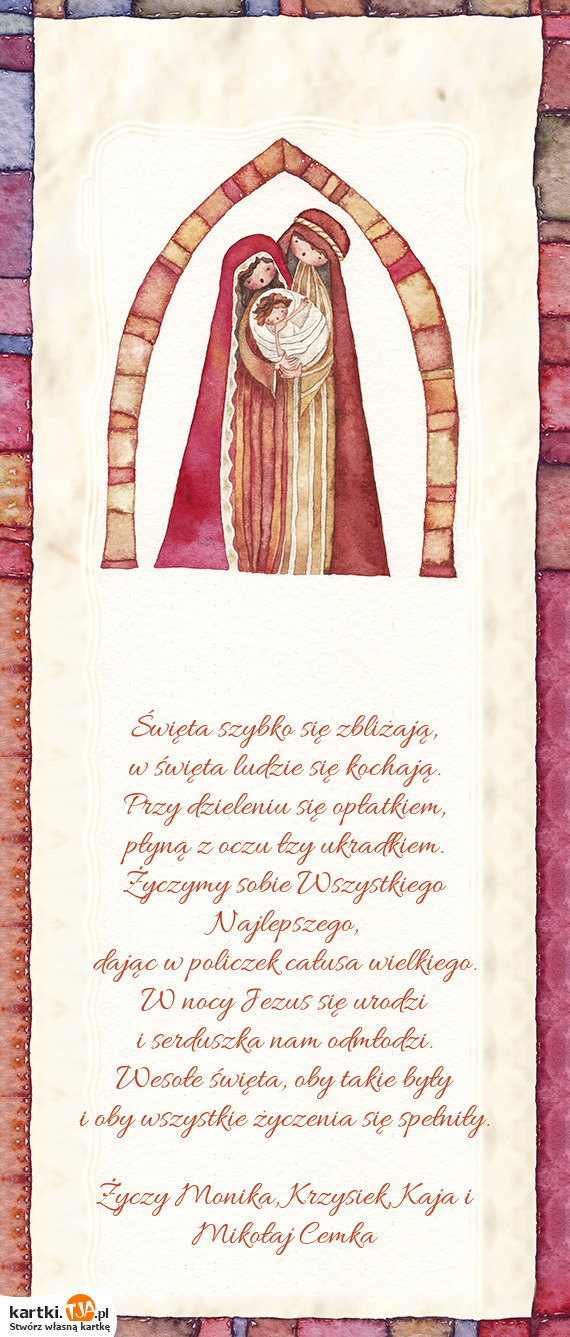 Święta szybko się zbliżają,
w święta ludzie się kochają.
Przy dzieleniu się opłatkiem,
płyną z oczu łzy ukradkiem.
Życzymy sobie Wszystkiego
Najlepszego,
dając w policzek całusa wielkiego.
W nocy Jezus się urodzi
i serduszka nam odmłodzi.
Wesołe święta, oby takie były
i oby wszystkie życzenia się spełniły.
Życzy Monika, Krzysiek, Kaja i
Mikołaj Cemka
kartki.TJA.pl
Stwórz własną kartkę